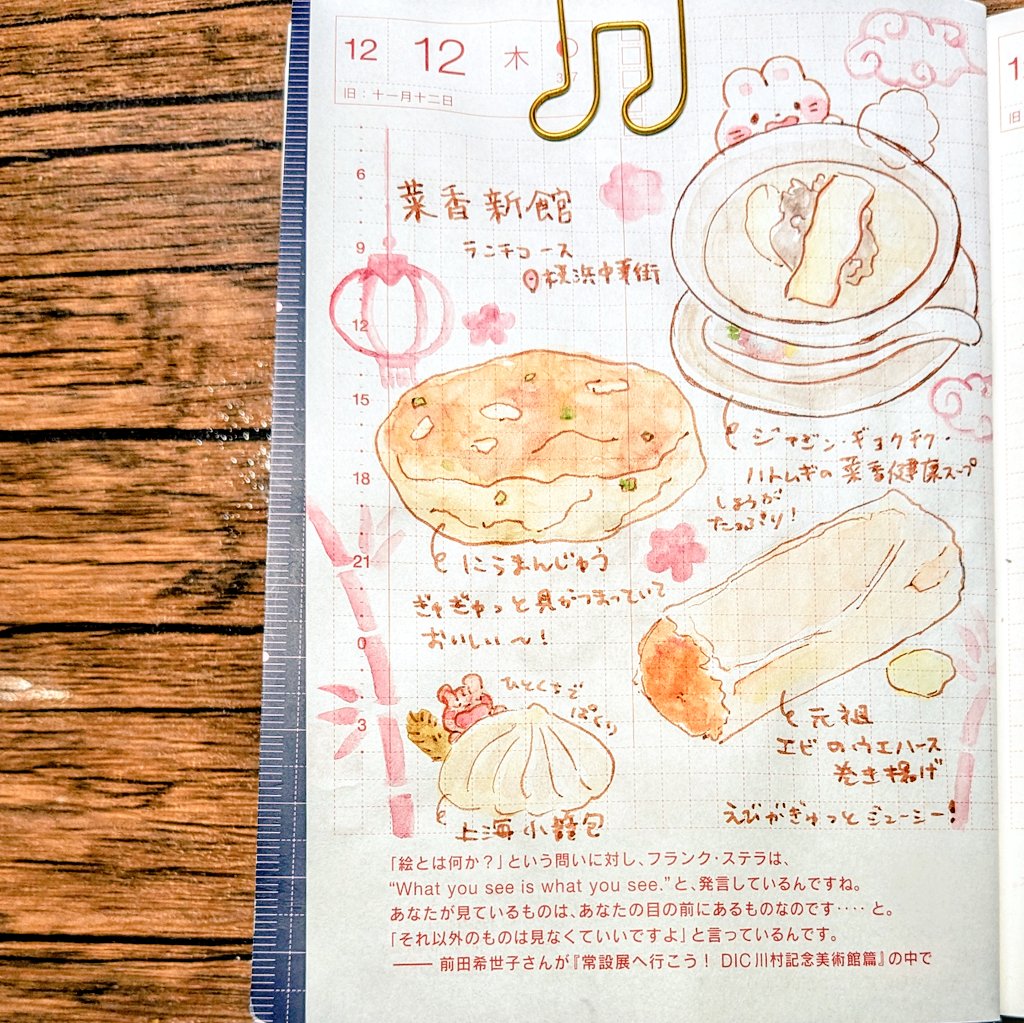 12 12 木
旧：十一月十二日
347
6
9
12
15
18
21
0
3
菜香新館
ランチコース
横浜中華街
ジャガン・ギョクチク・
ハトムギの菜香健康スープ
しょうが
たっぷり！
にらまんじゅう
ぎゅぎゅっと具がつまっていて
おいしい〜！
元祖
エビのウエハース
巻き揚げ
えびがぎゅっとジューシー！
ひとくちで
ぱくり
上海小籠包
「絵とは何か？」という問いに対し、フランク・ステラは、
“What you see is what you see.”と、発言しているんですね。
あなたが見ているものは、あなたの目の前にあるものなのです‥‥と。
「それ以外のものは見なくていいですよ」と言っているんです。
―― 前田希世子さんが『常設展へ行こう！ DIC川村記念美術館篇』の中で
1
旧